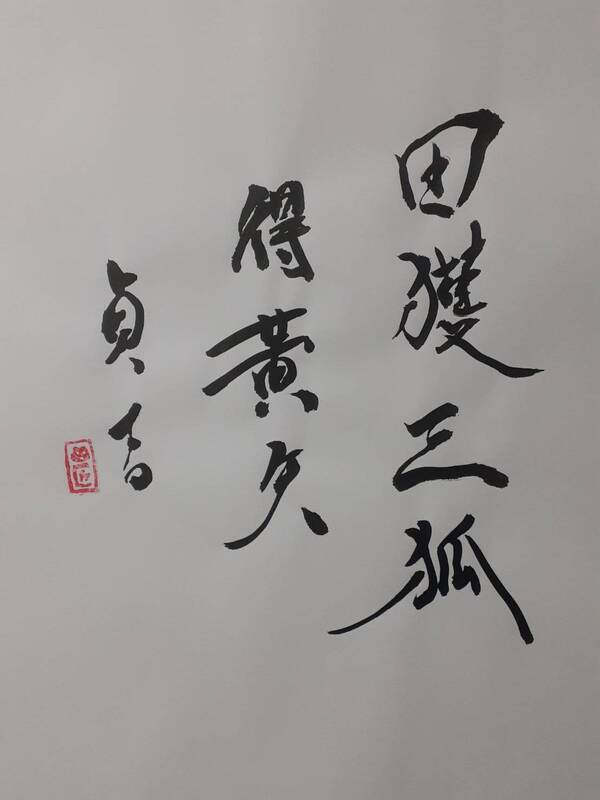 田獲三狐
得黃矢
貞吉